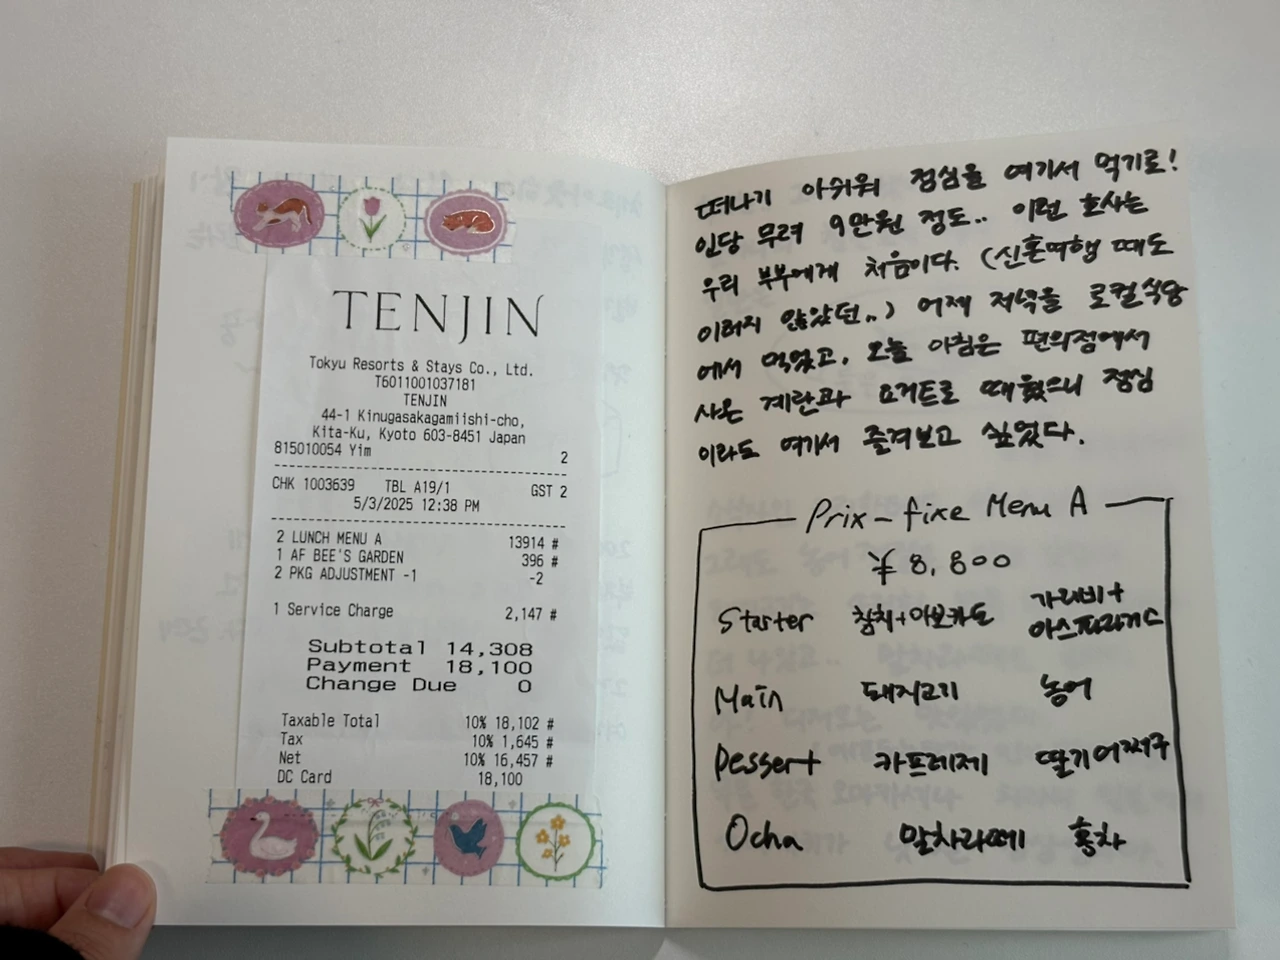 TENJIN
Tokyu Resorts & Stays Co., Ltd.
T6011001037181
TENJIN
44-1 Kinugasakagamiishi-cho,
Kita-Ku, Kyoto 603-8451 Japan
815010054 Yim 2
CHK 1003639 TBL A19/1 GST 2
5/3/2025 12:38 PM
2 LUNCH MENU A 13914 #
1 AF BEE'S GARDEN 396 #
2 PKG ADJUSTMENT -1 -2
1 Service Charge 2,147 #
Subtotal 14,308
Payment 18,100
Change Due 0
Taxable Total 10% 18,102 #
Tax 10% 1,645 #
Net 10% 16,457 #
DC Card 18,100
떠나기 아쉬워 점심을 여기서 먹기로!
인당 무려 9만원 정도.. 이런 호사는
우리 부부에게 처음이다. (신혼여행 때도
이러지 않았던..) 어제 저녁을 로컬식당
에서 먹었고, 오늘 아침은 편의점에서
사온 계란과 요거트로 때웠으니 점심
이라도 여기서 즐겨보고 싶었다.
Prix-fixe Menu A
¥ 8,800
Starter 참치+아보카도 가리비+
아스파라거스
Main 돼지고기 농어
Dessert 카프레제 딸기
Ocha 말차라떼 홍차